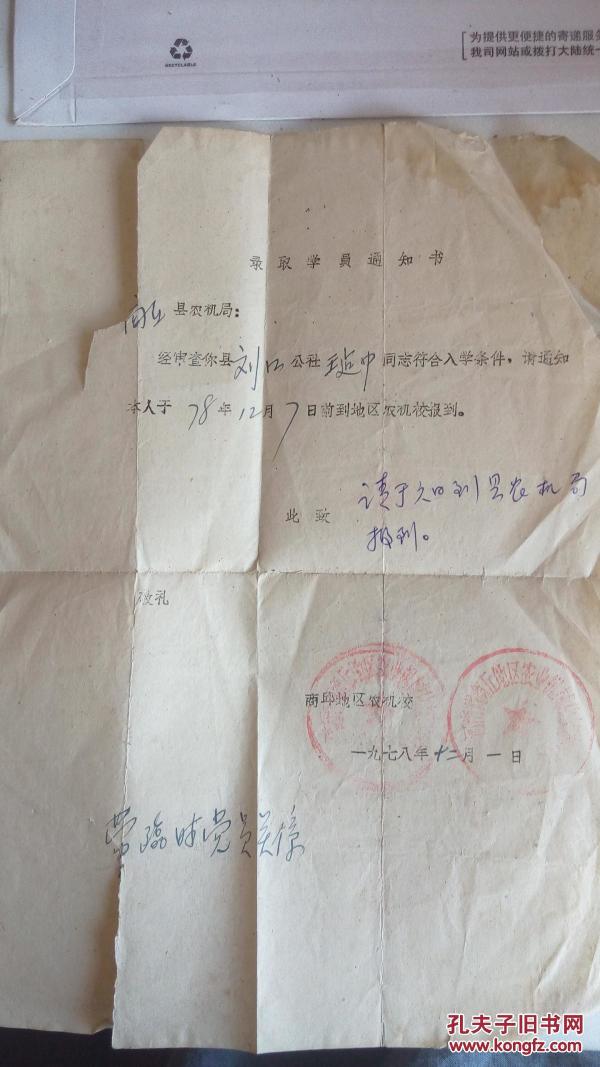 RECYCLABLE
为提供更便捷的寄递服务
我司网站或拨打大陆统一
录取学员通知书
县农机局:
经审查你县刘口公社中同志符合入学条件,请通知
本人于78年12月7日前到地区农机校报到。
此致
请于知到县农机局
报到。
敬礼
商邱地区农机校
一九七八年十二月一日
带临时党员关系
孔夫子旧书网
www.kongfz.com